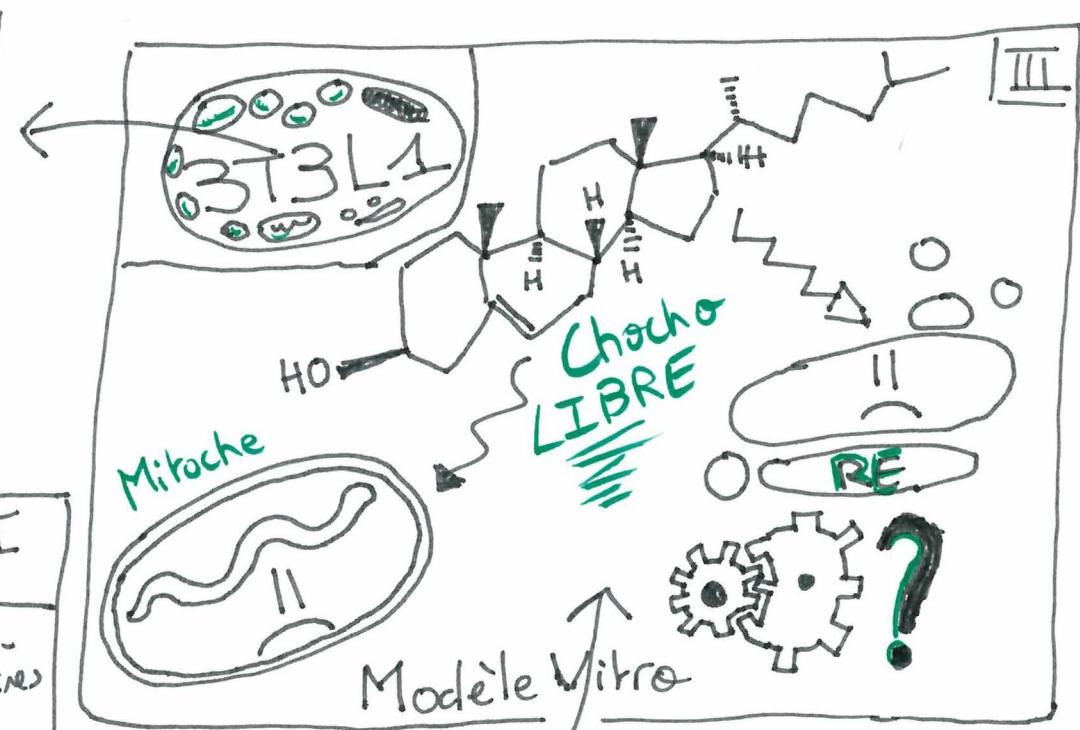 III
3T3L1
H
H
H
H
HO
Chocho
LIBRE
Mitoche
RE
?
Modèle Vitro